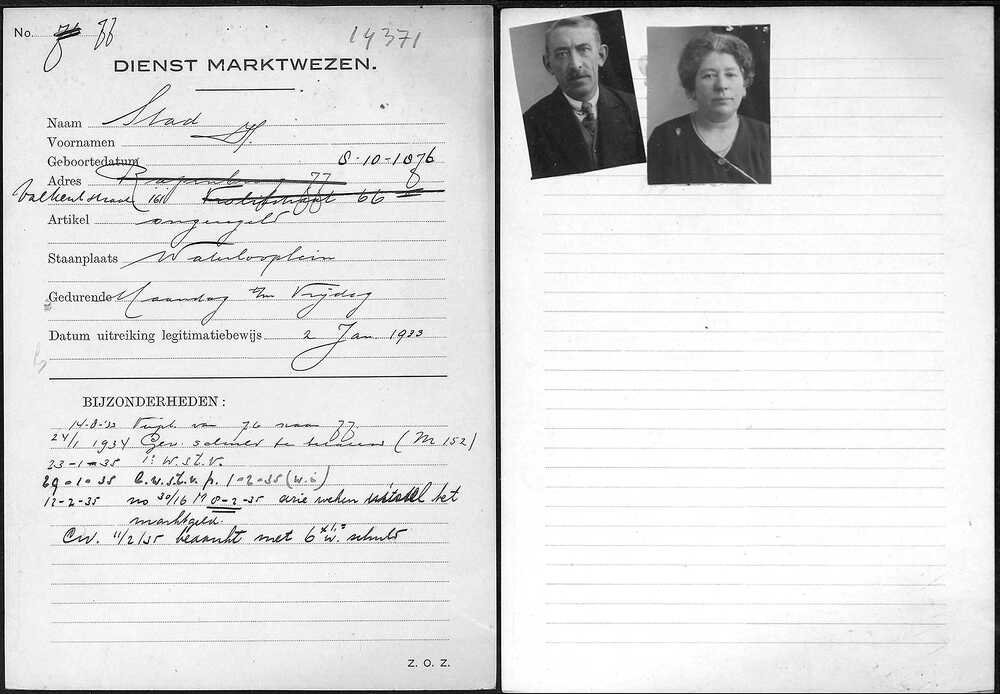 No. 76 77
14371
DIENST MARKTWEZEN.
Naam Stad
Voornamen H.
Geboortedatum 8-10-1876
Adres Rapenburg 77
Valkenstraat 161 66
Artikel ongeregeld
Staanplaats Waterlooplein
Gedurende Maandag t/m Vrijdag
Datum uitreiking legitimatiebewijs 2 Jan 1933
BIJZONDERHEDEN:
14-8-'33 van 76 naar 77
24/1 1934 Gev. schuld te (M 152)
23-1-35 i: w.st.v.
29-1-35 b.w.st.v. p. 1-2-35 (w.i)
12-2-35 no 30/16 M 8-2-35 drie weken uitstel bet
marktgeld.
Cw. 11/2/35 bedankt met 6 w. schuld
Z. O. Z.